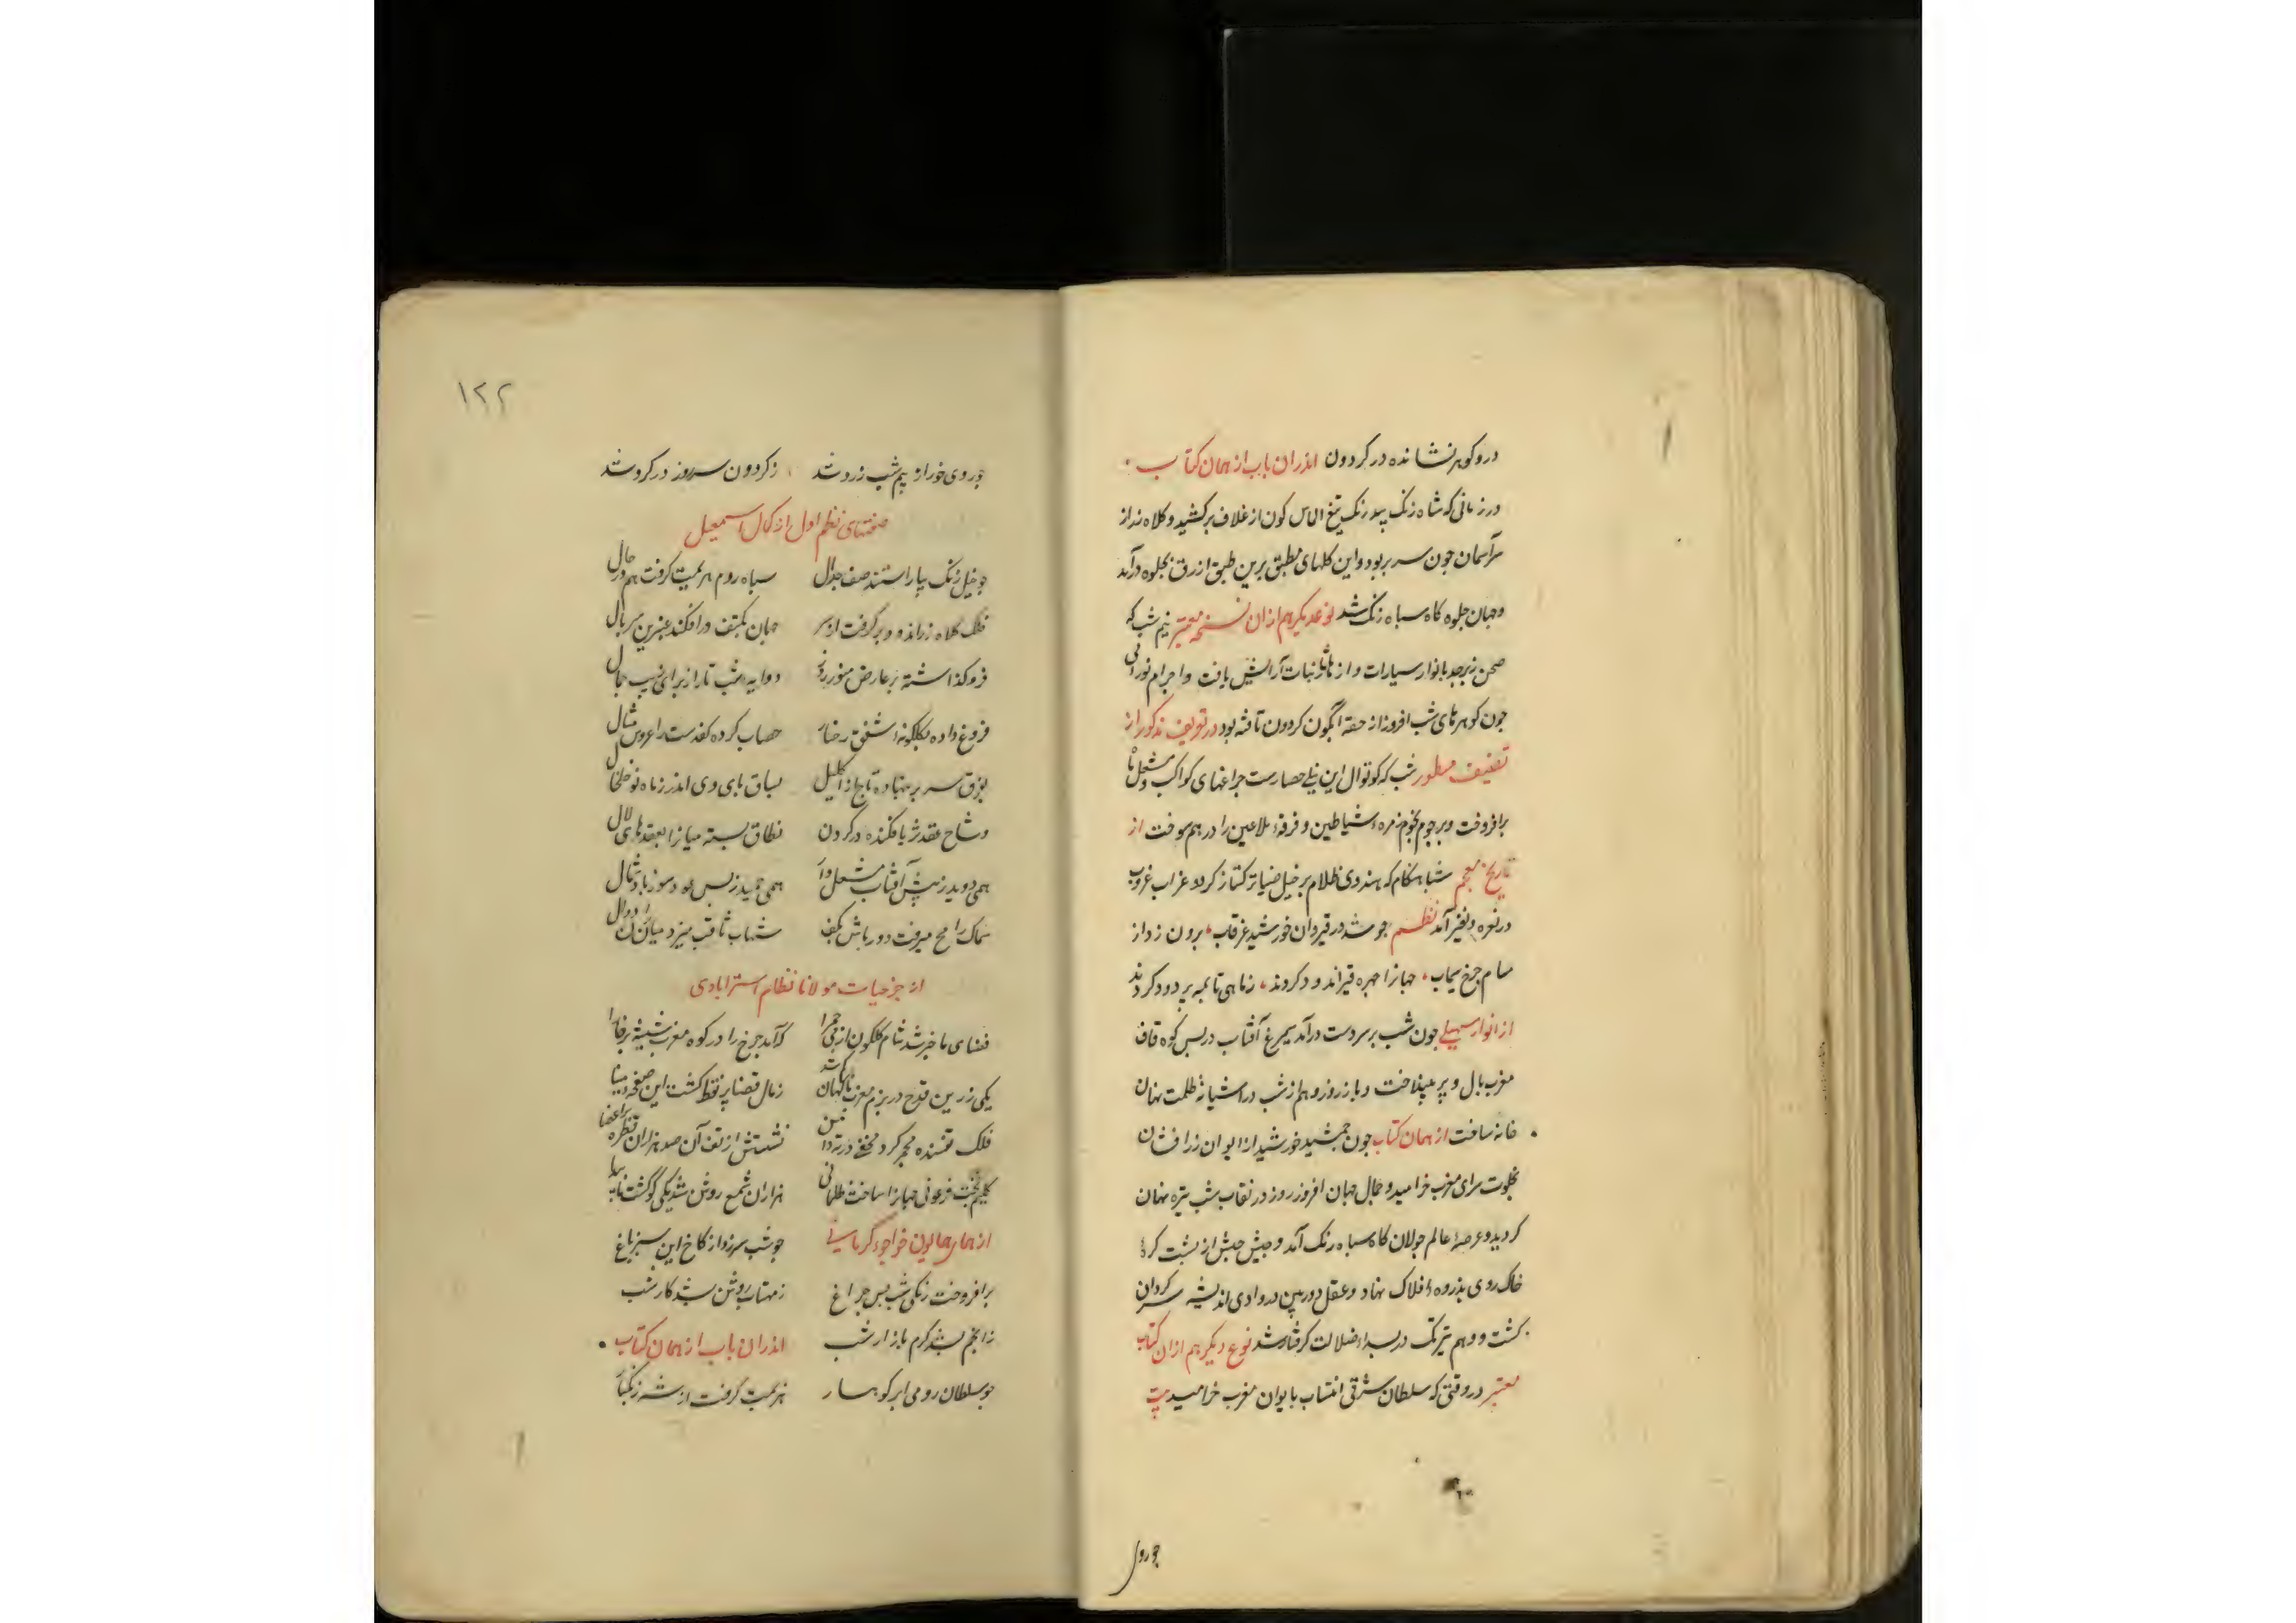 درو کوهر نشانده در کردون اندران باب از همان کتاب
در زمانی که شاه زنک بیدرنک تیغ الماس کون از غلاف برکشید و کلاه زر از
سر آسمان جون سر بربود و این کلهای مطبق برین طبق ازرق بجلوه درآمد
و جهان جلوه کاه سباه زنک شد نوعدیکر هم از آن نسخه معتبر نیم شب که
صحن زبرجد بانوار سیارات و از ثابتات آرایش یافت و اجرام نورانی
جون کوهرهای شب افروز از حقه آبگون کردون تافته بود در تعریف مذکور از
تصنیف مسطور شب که کوتوال این نیلی حصارست جراغهای کواکب و مشعل ماه
برافروخت و برجوم نجوم زمره شیاطین و فرقه ملاعین را در هم سوخت از
تاریخ معجم شبا هنکام که هندوی ظلام بر خیل ضیا ترکتاز کرد و غراب غروب
در نعره و نفیر آمد نظم جو شد در قیروان خورشید غرقاب برون زد از
مسام جرخ سیماب جهانرا جهره قیراندود کردند زماهی تا بمه بر دود کردند
از انوار سهیلی جون شب بر سر دست درآمد سیمرغ آفتاب در بس کوه قاف
مغرب بال و پر بینداخت و باز زرو هم از شب در آشیانه ظلمت نهان
خانه ساخت از همان کتاب جون جمشید خورشید از ایوان زرافشان
بخلوت سرای مغرب خرامید و جمال جهان افروز روز در نقاب شب تیره نهان
کردید و عرصه عالم جولان کاه سباه زنک آمد و جیش حبش از بشت کره
خاک روی بذروه افلاک نهاد و عقل دوربین در وادی اندیشه سرکردان
کشت و وهم تیزتک در بیداء ضلالت کرفتار شد نوع دیکر هم ازان کتاب
معتبر در وقتی که سلطان شرقی انتساب بایوان مغرب خرامید بیت
جو روی
۱۲۲
جو روی خور از بیم شب زرد شد زکردون سر روز در کرد شد
صفتهای نظم اول از کمال اسمعیل
جو خیل زنک بیاراستند صف جدال سباه روم هزیمت کرفت هم در حال
فلک کلاه زراندود برگرفت از سر جهان بکتف در افکند عنبرین سربال
فروکذاشته بر عارض منور روز دوایه شب تار از برای زیب جمال
فروغ داده بکلکونه شفق رخسار خضاب کرده کف دست را عروس مثال
بفرق سر بر نهاده تاج از اکلیل بساق بای وی اندر ز ماه نو خلخال
وشاح عقد ثریا فکنده در کردن نطاق بسته میانرا بعقدهای لال
همی دوید ز پیش آفتاب مشعل دار همی جمید ز بس عود سوز باد شمال
سماک رامح میرفت دورباش بکف شهاب ثاقب میزد میان راه دوال
از جزحیات مولانا نظام استرابادی
فضای ماخیر شد شام کلکون از می حمرا که آمد جرخ را در کوه مغرب شیشه بر خارا
یکی زرین قدح در بزم مغرب ناکهان کم شد زمال قضا پر نقط کشت این صفحه مینا
فلک تفسنده مجمر کرد مخفی در ته دامن نشستش از تف آن صد هزاران قطره بر اعضا
کلیم بخت فرعونی جهانرا ساخت ظلمانی هزاران شمع روشن شد یکی کو کشت نابیدا
از همای همایون خواجوء کرمانی جو شب سر زد از کاخ این سبز باغ
برافروخت زنکی شب بس جراغ ز مهتاب روشن شد کار شب
ز انجم شد کرم بازار شب اندران باب از همان کتاب
جو سلطان رومی ابر کوهسار هزیمت کرفت از شه زنکبار